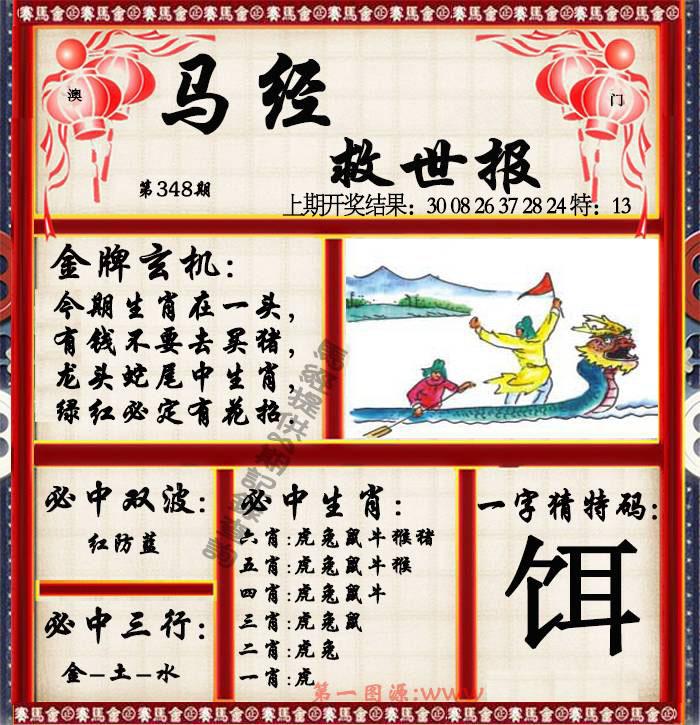 賽馬會正賽馬會正賽馬會正賽馬會正賽馬會正賽馬會
澳
门
马经
救世报
第348期
上期开奖结果：30 08 26 37 28 24 特：13
金牌玄机：
今期生肖在一头，
有钱不要去买猪，
龙头蛇尾中生肖，
绿红必定有花招．
必中双波：
红防蓝
必中三行：
金-土-水
必中生肖：
六肖：虎兔鼠牛猴猪
五肖：虎兔鼠牛猴
四肖：虎兔鼠牛
三肖：虎兔鼠
二肖：虎兔
一肖：虎
一字猜特码：
饵
第一图源：www